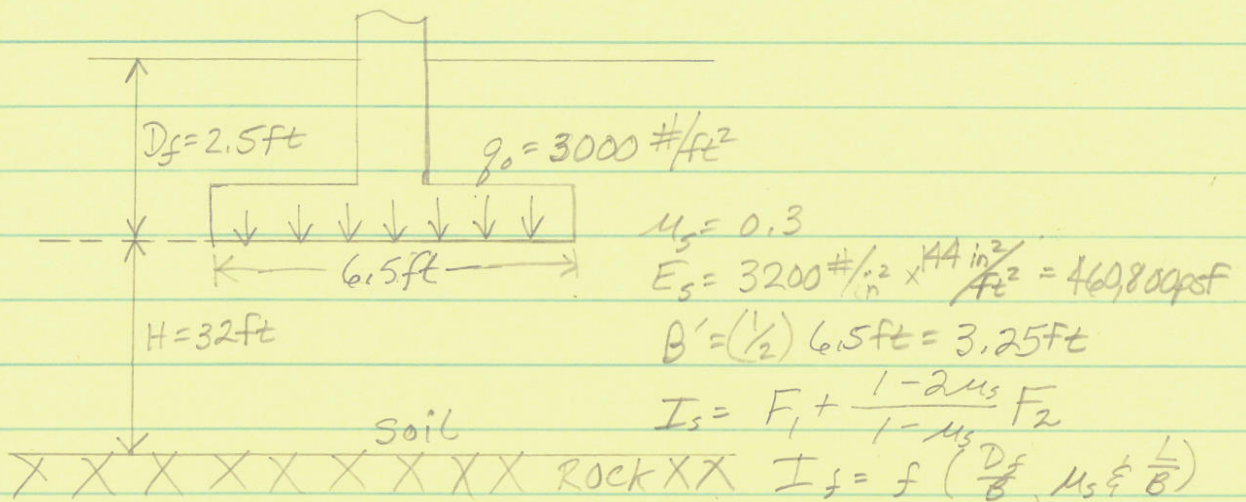 D_f = 2.5ft
q_o = 3000 #/ft²
μ_s = 0.3
6.5ft
E_s = 3200 #/in² × 144 in²/ft² = 460,800psf
H = 32ft
B' = (1/2) 6.5ft = 3.25ft
I_s = F_1 + (1-2μ_s)/(1-μ_s) F_2
soil
ROCK
I_f = f (D_f/B, μ_s & L/B)